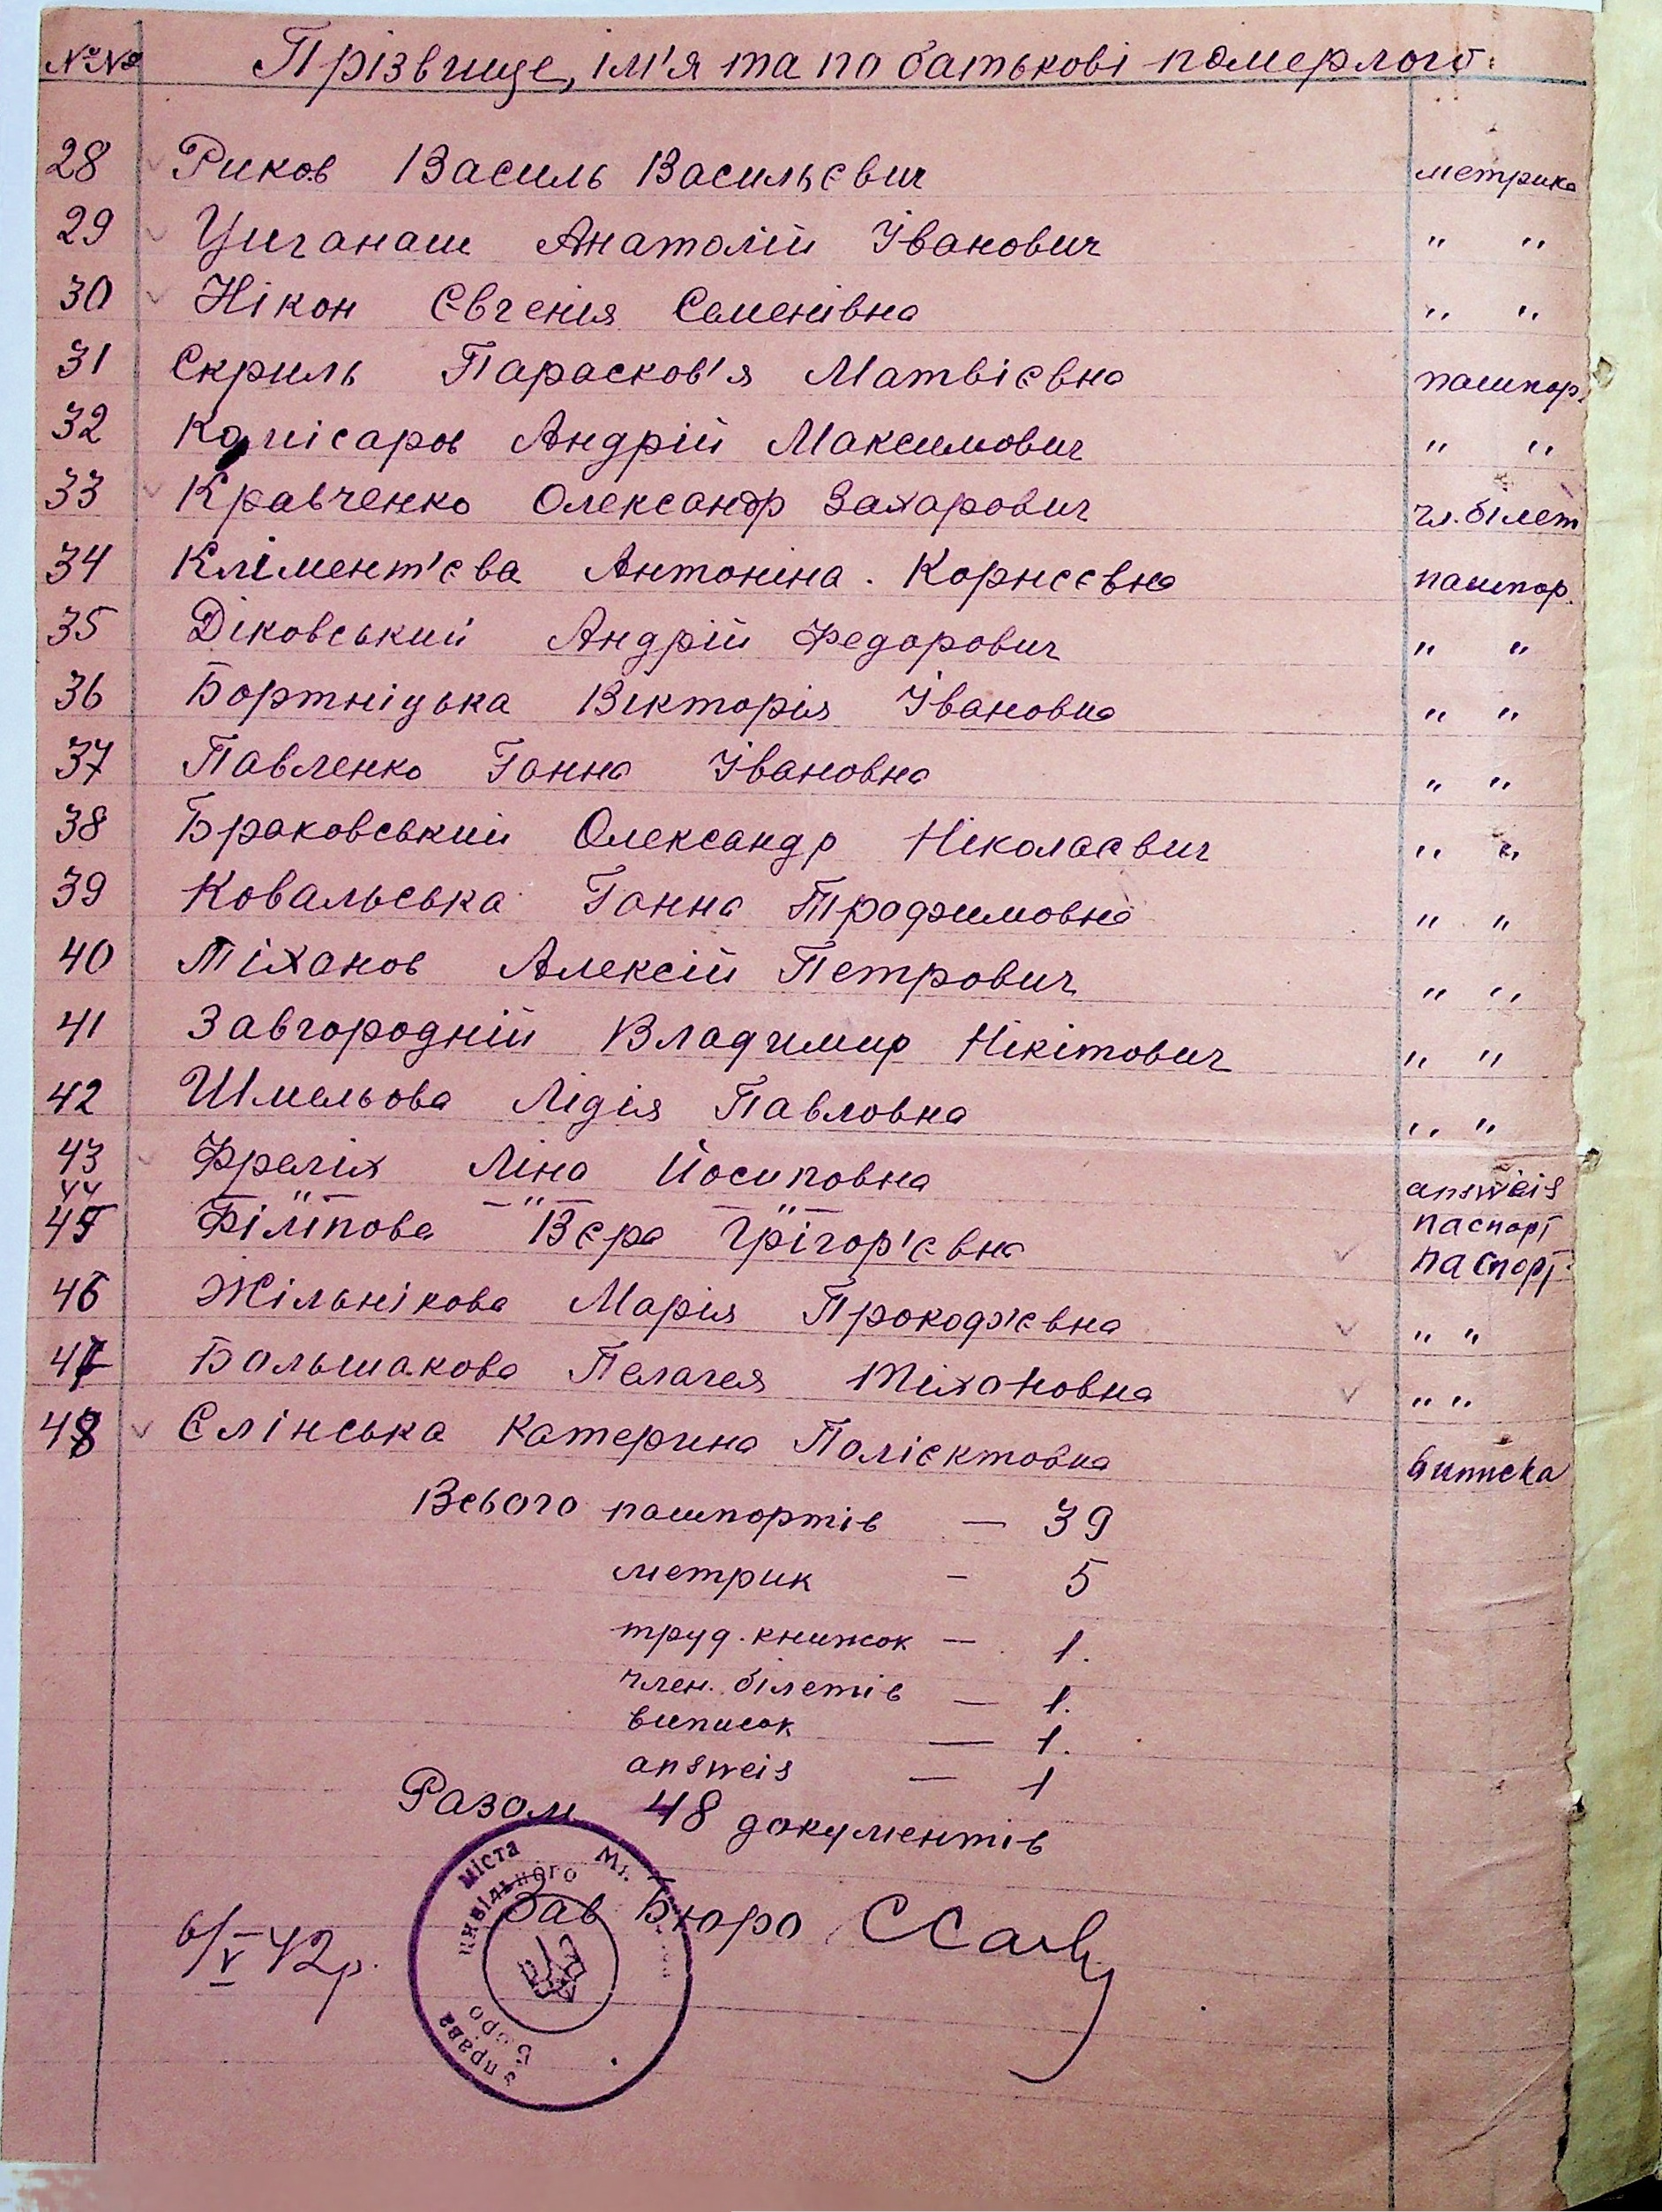 №№ Прізвище, ім'я та по батькові померлого.
28 Риков Василь Васильєвич метрика
29 Циганаш Анатолій Іванович " "
30 Нікон Євгенія Семенівна " "
31 Скриль Парасков'я Матвієвна пашпор.
32 Комісаров Андрій Максимович " "
33 Кравченко Олександр Захарович чл. білет
34 Клімент'єва Антоніна. Корнєєвна пашпор.
35 Діковський Андрій Федорович " "
36 Бортніцька Вікторія Івановна " "
37 Павленко Ганна Івановна " "
38 Браковський Олександр Ніколаєвич " "
39 Ковальська Ганна Трофимовна " "
40 Тіханов Алексій Петрович " "
41 Завгородній Владимир Нікітович " "
42 Шмельова Лідія Павловна " "
43 Фреліх Ліна Йосиповна answeis
44 — " — — " — — " — паспорт
45 Філіпова Вєра Грігор'євна паспорт
46 Жільнікова Марія Прокоф'євна " "
47 Большакова Пелагея Тіхоновна " "
48 Єлінська Катерина Полієктовна виписка
Всього пашпортів — 39
метрик - 5
труд. книжок — 1.
член. білетів — 1.
виписок — 1.
answeis — 1
Разом 48 документів
міста
цивільного
Зав Бюро
6/V 42р.
Бюро